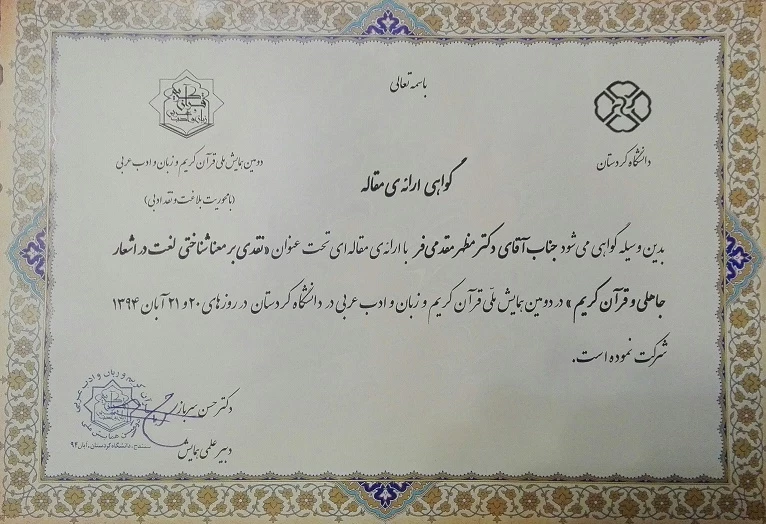 باسمه تعالی
دانشگاه کردستان
دومین همایش ملی قرآن کریم و زبان و ادب عربی
(با محوریت بلاغت و نقد ادبی)
گواهی ارائه‌ی مقاله
بدین وسیله گواهی می‌شود جناب آقای دکتر مظهر مقدمی‌فر با ارائه‌ی مقاله‌ای تحت عنوان «نقدی بر معناشناختی لغت در اشعار
جاهلی و قرآن کریم» در دومین همایش ملّی قرآن کریم و زبان و ادب عربی در دانشگاه کردستان در روزهای ۲۰ و ۲۱ آبان ۱۳۹۴
شرکت نموده است.
دکتر حسن سرباز
دبیر علمی همایش
سنندج، دانشگاه کردستان، آبان ۹۴